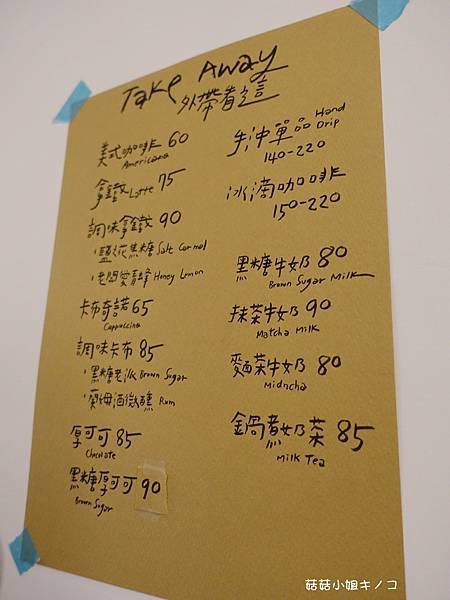 Take Away
外帶看這
美式咖啡 60
Americano
拿鐵 Latte 75
調味拿鐵 90
・鹽之花焦糖 Salt Carmel
・老闆愛蜂蜜 Honey Lemon
卡布奇諾 65
Cappuccino
調味卡布 85
・黑糖老派 Brown Sugar
・蘭姆酒微醺 Rum
厚可可 85
Chocolate
黑糖厚可可 90
Brown Sugar
手沖單品 Hand Drip
140-220
冰滴咖啡
150-220
黑糖牛奶 80
Brown Sugar Milk
抹茶牛奶 90
Matcha Milk
麵茶牛奶 80
Midncha
鍋煮奶茶 85
Milk Tea
菇菇小姐キノコ